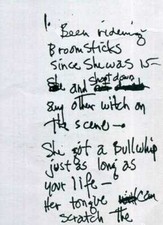 1.
Been ridening
Broomsticks
Since She was 15—
She and Shot down
any other witch on
The scene—
She got a Bullwhip
just as long as
your life—
Her tongue can
scratch the